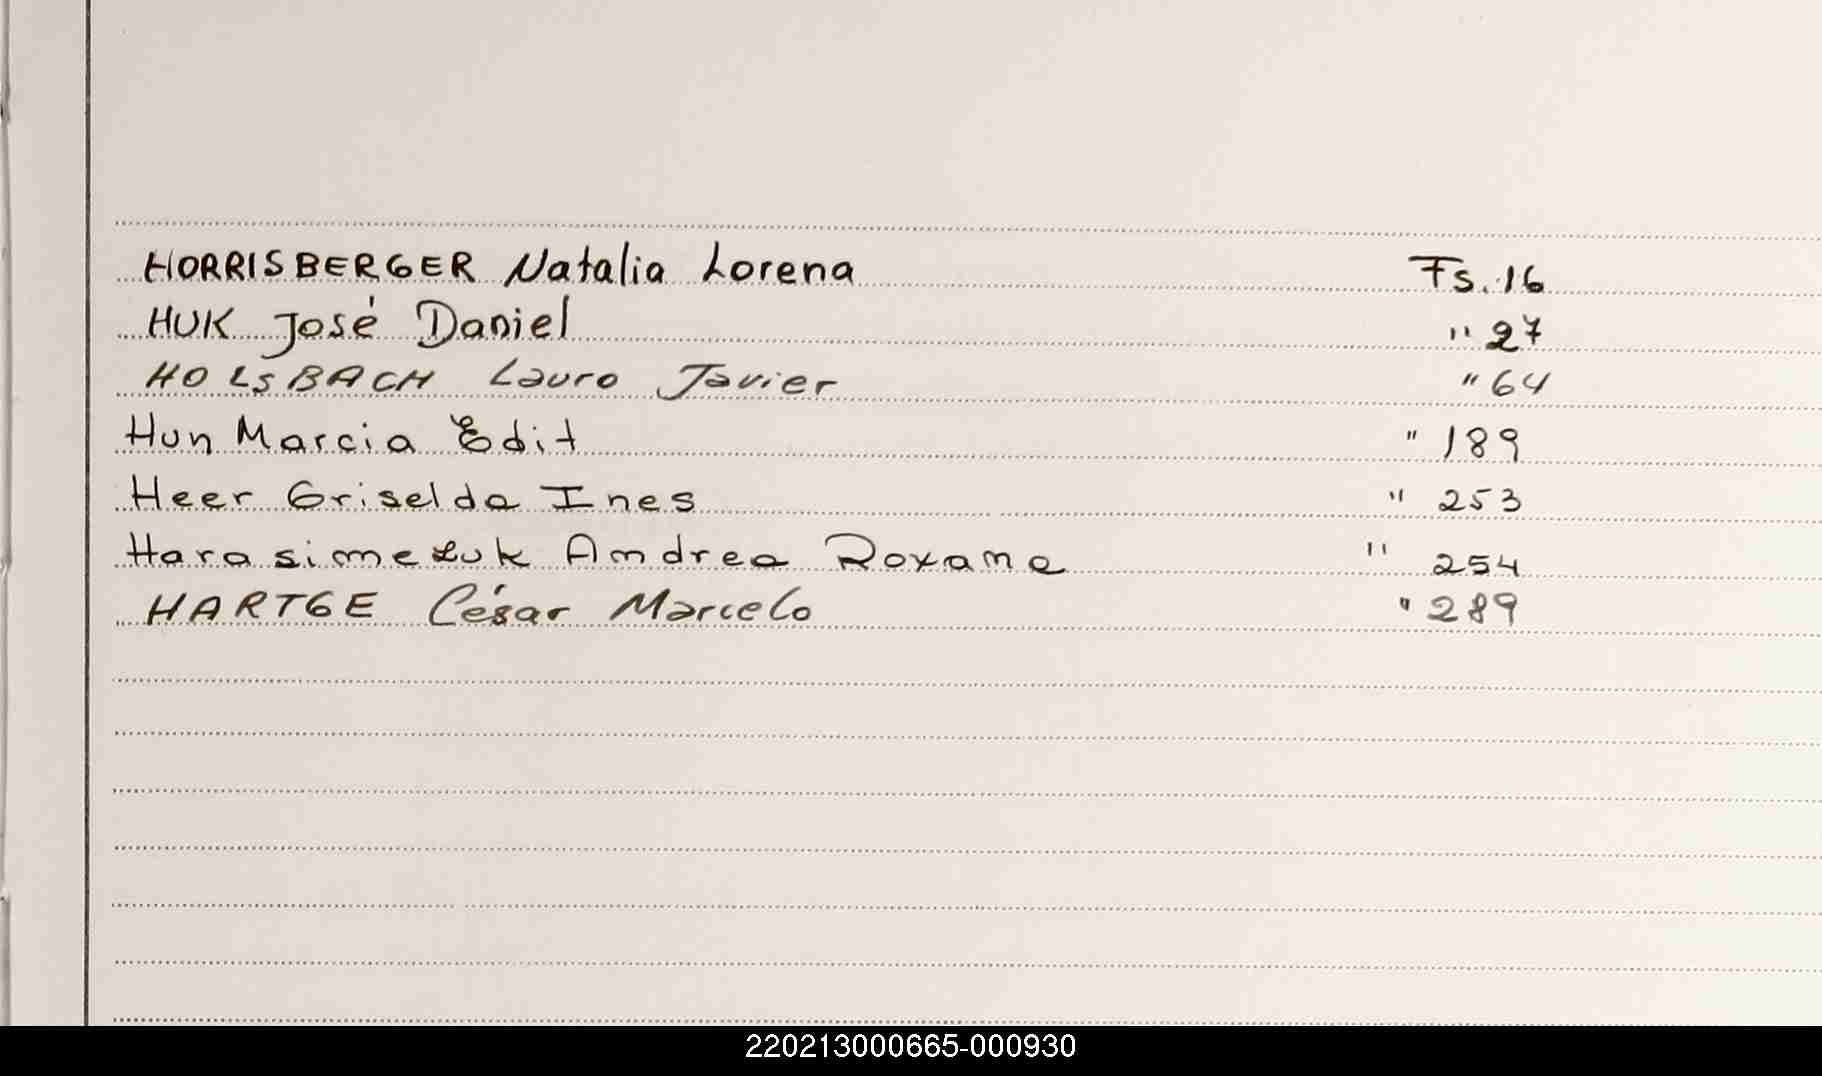 HORRISBERGER Natalia Lorena Fs. 16
HUK José Daniel " 27
HOLSBACH Lauro Javier " 64
Hun Marcia Edit " 189
Heer Griselda Ines " 253
Andrea Roxana " 254
HARTGE César Marcelo " 289
220213000665-000930